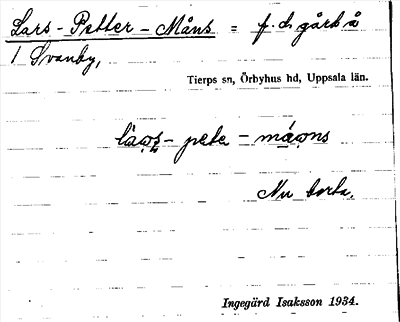 Lars-Petter-Måns = f.d. gård å
i Svanby,
Tierps sn, Örbyhus hd, Uppsala län.
la̤o̤s̤ - pete - máo̤ns
Nu borta.
Ingegärd Isaksson 1934.